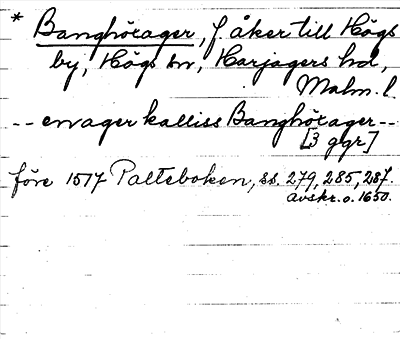 * Banghörager, f. åker till Högs
by, Högs sn, Harjagers hd,
Malm. l.
-- en ager kalliss Banghörager --
[3 ggr]
före 1517 Palteboken, ss. 279, 285, 287.
avskr. o. 1650.